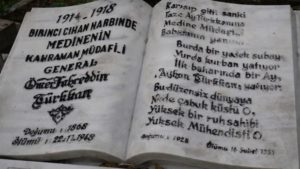 1914-1918
BIRINCI CIHAN HARBINDE
MEDINENIN
KAHRAMAN MÜDAFİ.İ
GENERAL
Ömer Fahreddin
Türkkan
Doğumu : 1868
Ölümü : 22.11.1948
Karışıp
Taze Ay Türkkanına
Medine Müdafi
Babasının yanına
Burda bir yatık subay
Yurda kurban yatıyor
İlk baharında bir Ay,
Ayhan Türkkan yatıyor
Bu düzensiz dünyaya
Nede çabuk küstü O.
Yüksek bir ruh sahibi
Yüksek Mühendisti O.
Doğumu : 1928
Ölümü 16 Şubat